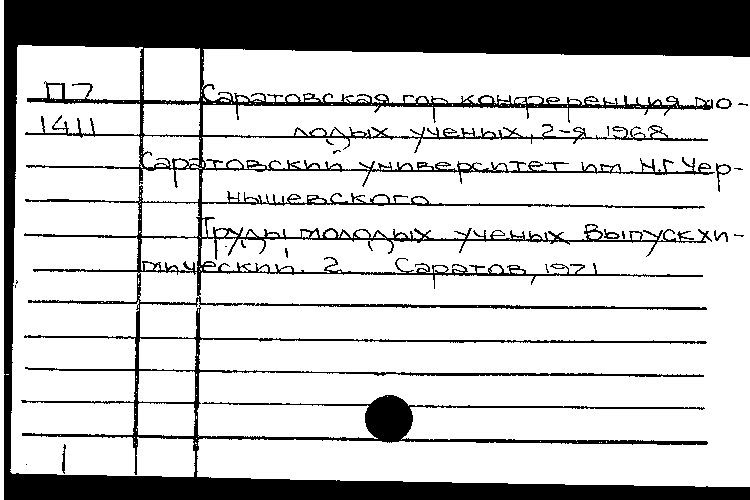 П7 Саратовская гор конференция мо-
1411 лодых ученых, 2-я. 1968
Саратовский университет им. Н.Г. Чер-
нышевского.
Труды молодых ученых Выпуск хи-
мический. 2. Саратов, 1971